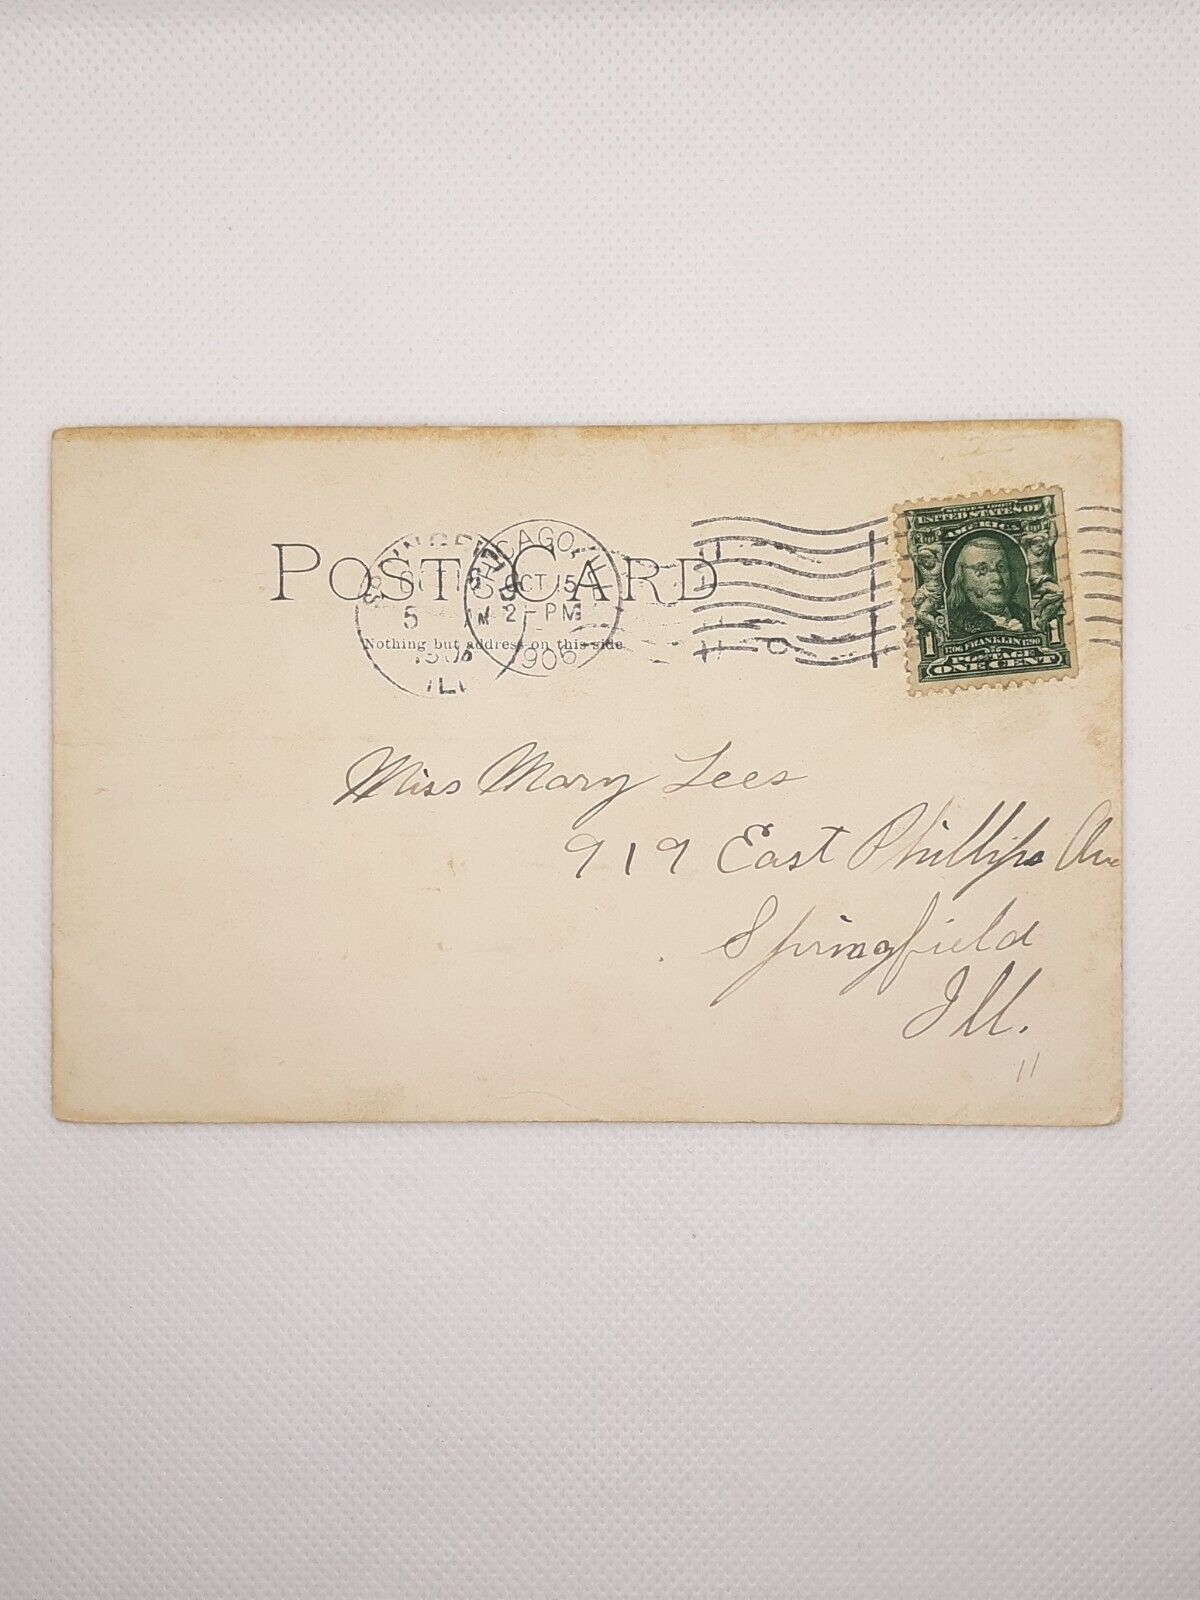 POST CARD
Nothing but address on this side
CHICAGO, ILL
OCT 15
2-PM
1906
SERIES 1902
UNITED STATES OF
AMERICA
1706 FRANKLIN 1790
1 POSTAGE 1
ONE CENT
Miss Mary Lees
919 East Phillips Ave
Springfield
Ill.
11